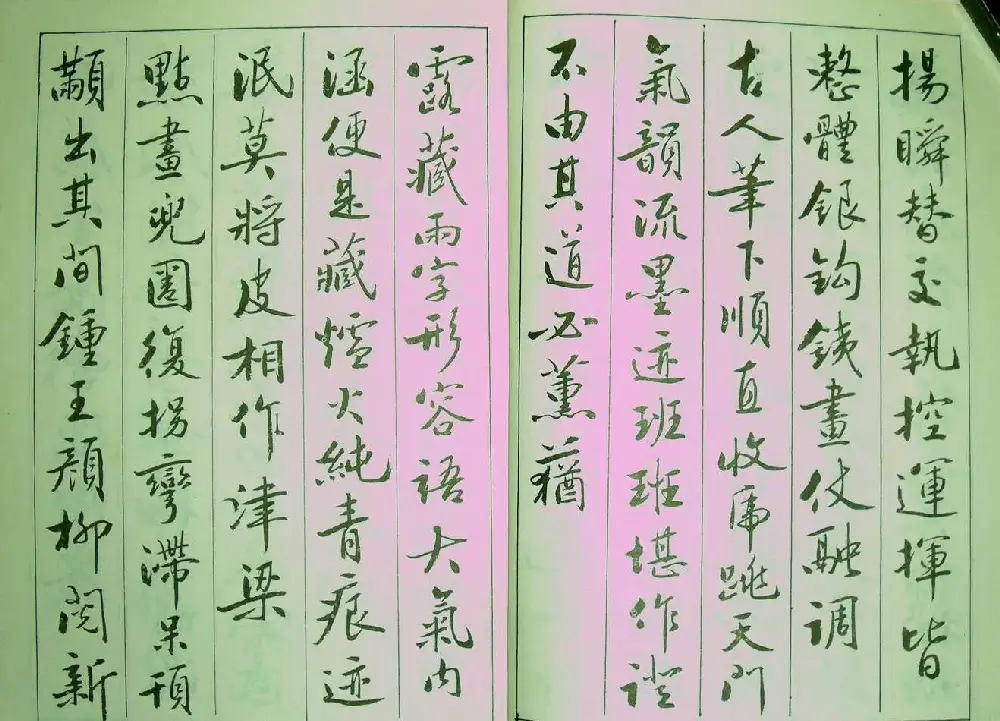 揚瞬替交執控運揮皆
整體銀鈎鉄畫仗融调
古人筆下順直收虎跳天門
氣韻流墨迹班班堪作證
不由其道必薰蕕
露藏兩字形容語大氣内
涵便是藏爐火純青痕迹
泯莫將皮相作津梁
點畫兜圈復拐彎滯呆頓
顯出其间鍾王顔柳閱新